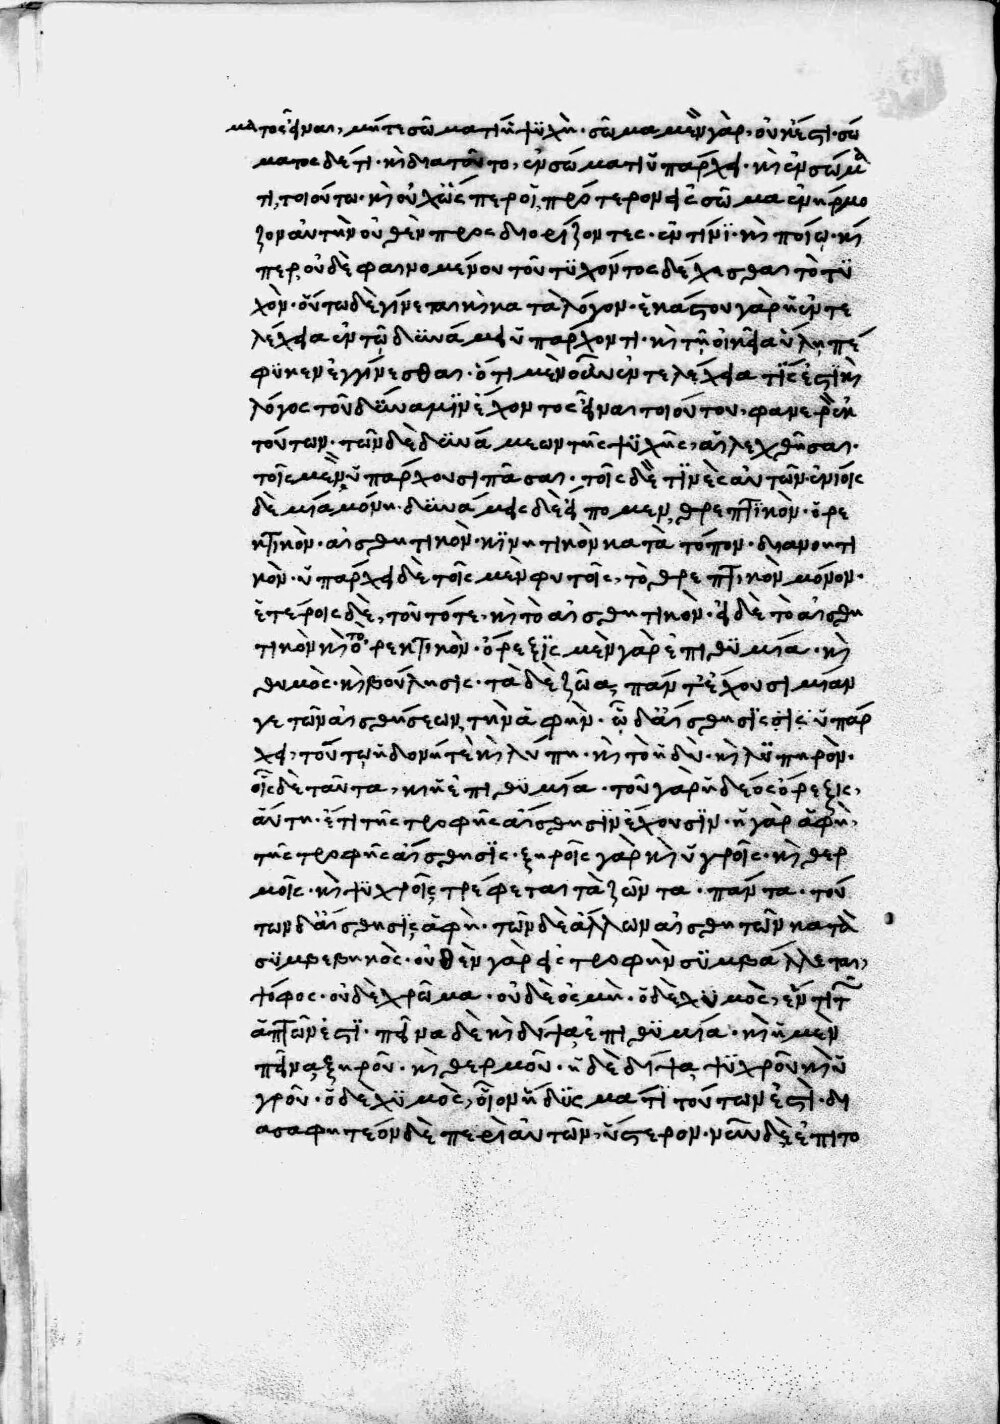 ματος εἶναι, μήτε σῶμα τι ἡ ψυχή· σῶμα μὲν γὰρ, οὐκ ἔστι· σώ
ματος δέ τι· κὶ διατοῦτο, ἐν σώματι ὑπάρχει· κὶ ἐν σώμα
τι, τοιούτω· κὶ οὐχ ὥσπερ οἱ πρότερον εἰς σῶμα ἐνήρμο
ζον αὐτὴν οὐθὲν προσδιορίζοντες· ἐν τίνι· κὶ ποίῳ· κὶ
περ, οὐδὲ φαινομένου τοῦ τυχόντος δέχεσθαι τὸ τυ
χόν· οὕτω δὲ γίνεται κὶ κατα λόγον· ἑκάστου γὰρ ἡ ἐντε
λέχεια ἐν τῶ δυνάμει ὑπάρχοντι· κὶ τῆ οἰκεία ὕλη πέ
φυκεν ἐγγίνεσθαι· ὅτι μὲν οὖν ἐντελέχεια τίς ἐστι κὶ
λόγος τοῦ δύναμιν ἔχοντος εἶναι τοιούτου, φανερὸν ἐκ
τούτων· τῶν δὲ δυνάμεων τῆς ψυχῆς, αἱ λεχθῆσαι·
τοῖς μὲν ὑπάρχουσι πᾶσαι· τοῖς δὲ τινὲς αὐτῶν· ἐνίοις
δὲ μία μόνη· δυνάμεις δὲ εἴπομεν, θρεπτικὸν· ὀρε
κτικὸν· αἰσθητικὸν· κινητικὸν κατὰ τόπον· διανοητι
κόν· ὑπάρχει δὲ τοῖς μὲν φυτοῖς, τὸ θρεπτικὸν μόνον·
ἑτέροις δὲ, τοῦτό τε, κὶ τὸ αἰσθητικὸν· εἰ δὲ τὸ αἰσθη
τικὸν κὶ τὸ ὀρεκτικὸν· ὄρεξις μὲν γὰρ ἐπιθυμία· κὶ
θυμὸς· κὶ βούλησις· τὰ δὲ ζῶα, πάντ' ἔχουσι μίαν
γε τῶν αἰσθήσεων, τὴν ἁφήν· ᾧ δ' αἴσθησις ὑπάρ
χει, τούτω ἡδονή τε κὶ λύπη· κὶ τὸ ἡδὺ· κὶ λυπηρόν·
οἷς δὲ ταῦτα, κὶ ἡ ἐπιθυμία· τοῦ γὰρ ἡδέος ὄρεξις,
αὕτη· ἔτι τῆς τροφῆς αἴσθησιν ἔχουσιν· ἡ γὰρ ἁφὴ,
τῆς τροφῆς αἴσθησις· ξηροῖς γὰρ κὶ ὑγροῖς· κὶ θερ
μοῖς· κὶ ψυχροῖς τρέφεται τὰ ζῶντα· πάντα· τού
των δ' αἴσθησις ἁφή· τῶν δὲ ἄλλων αἰσθητῶν κατὰ
συμβεβηκὸς· οὐθὲν γὰρ εἰς τροφὴν συμβάλλεται,
ψόφος· οὐδὲ χρῶμα· οὐδὲ ὀσμή· ὁ δὲ χυμὸς, ἕν τι τῶν
ἁπτῶν ἐστί· πεῖνα δὲ κὶ δίψα, ἐπιθυμία· κὶ ἡ μὲν
πεῖνα, ξηροῦ· κὶ θερμοῦ· ἡ δὲ δίψα, ψυχροῦ κὶ ὑ
γροῦ· ὁ δὲ χυμὸς, οἷον ἥδυσμά τι τούτων ἐστί· δι
ασαφητέον δὲ περὶ αὐτῶν, ὕστερον· νῦν δὲ, ἐπὶ το